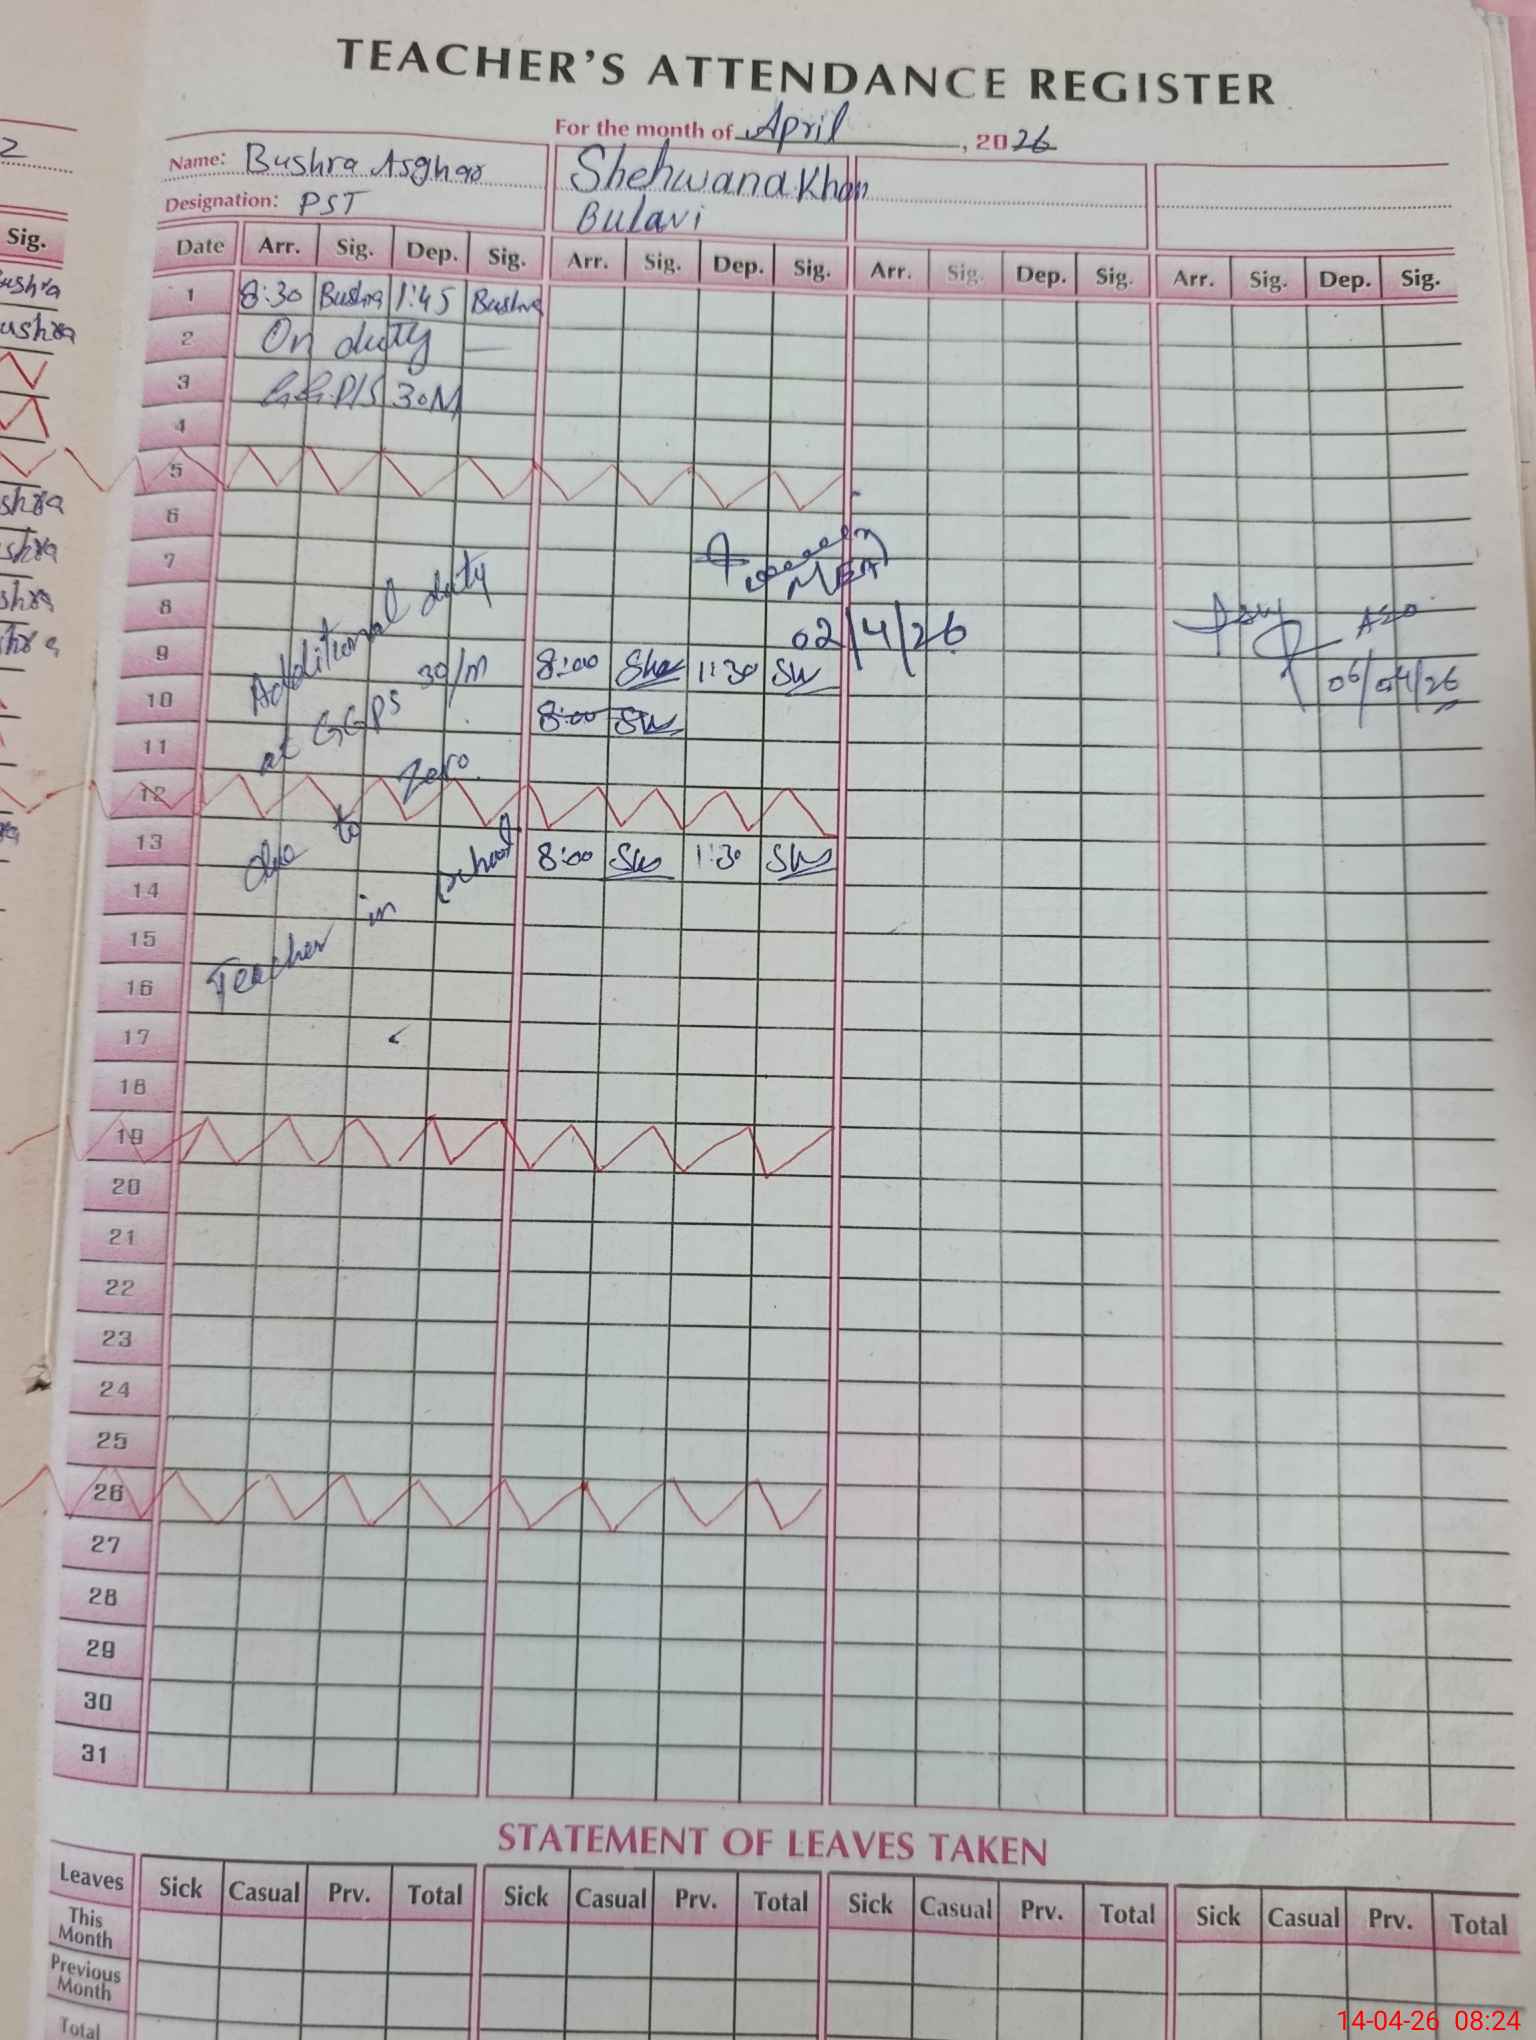 TEACHER'S ATTENDANCE REGISTER
For the month of April, 2026
2
Name: Bushra Asghar Shehwana Khan
Designation: PST Bulavi
Sig. Date Arr. Sig. Dep. Sig. Arr. Sig. Dep. Sig. Arr. Sig. Dep. Sig. Arr. Sig. Dep. Sig.
1 8:30 Bushra 1:45 Bushra
2 On duty —
3 GGP/S 30M
4
5
6
7
8
MEA
02/4/26
ASO
06/04/26
9 8:00 1:30
10 8:00
11
12
13 8:00 1:30
14
15
16
17
18
19
20
21
22
23
24
25
26
27
28
29
30
31
Additional duty
at GGPS 30/M
due to Zero
Teacher in school
STATEMENT OF LEAVES TAKEN
Leaves Sick Casual Prv. Total Sick Casual Prv. Total Sick Casual Prv. Total Sick Casual Prv. Total
This Month
Previous Month
Total
14-04-26 08:24